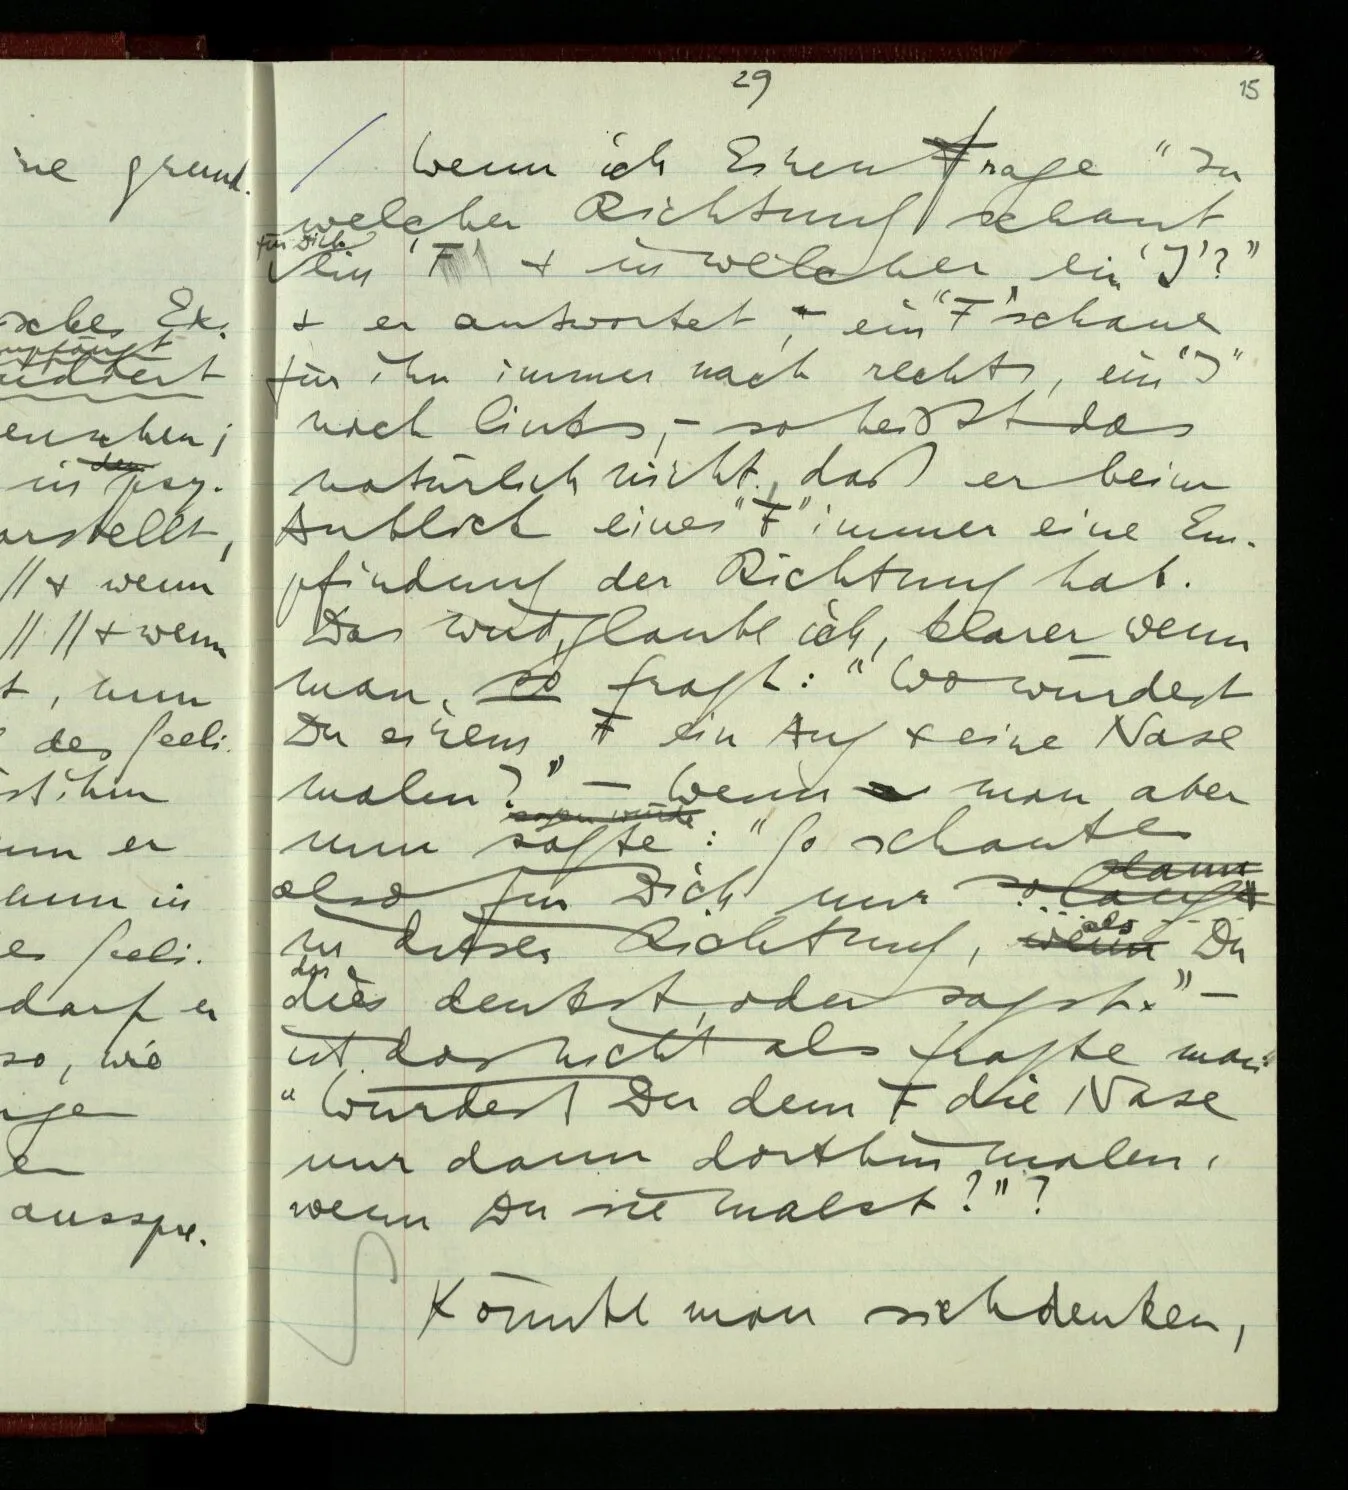 29
15
ne grund.
Ex.
enschen;
in den psy.
orstellt,
// & wenn
// // & wenn
t, nun
des Geeli.
ist ihm
er
nun in
es Geeli.
darf er
so, wie
er
ausspre.
Wenn ich Einen frage "In
welcher Richtung schaut
für Dich
ein 'F' & in welcher ein 'J'?"
& er antwortet, – ein "F" schaue
für ihn immer nach rechts, ein "J"
nach links, – so heißt das
natürlich nicht, daß er beim
Anblick eines "F" immer eine Em-
pfindung der Richtung hat.
Das wird, glaube ich, klarer wenn
man so fragt: "Wo würdest
Du einem F ein Aug & eine Nase
malen?" – Wenn man aber
sagen würde
nun sagte: "So schaut es
dann
also für Dich nur so lange
in dieser Richtung, wenn als Du
das
dies denkst, oder sagst." –
ist das nicht als fragte man:
"Würdest Du dem F die Nase
nur dann dorthin malen,
wenn Du sie malst?"?
Könnte man sich denken,